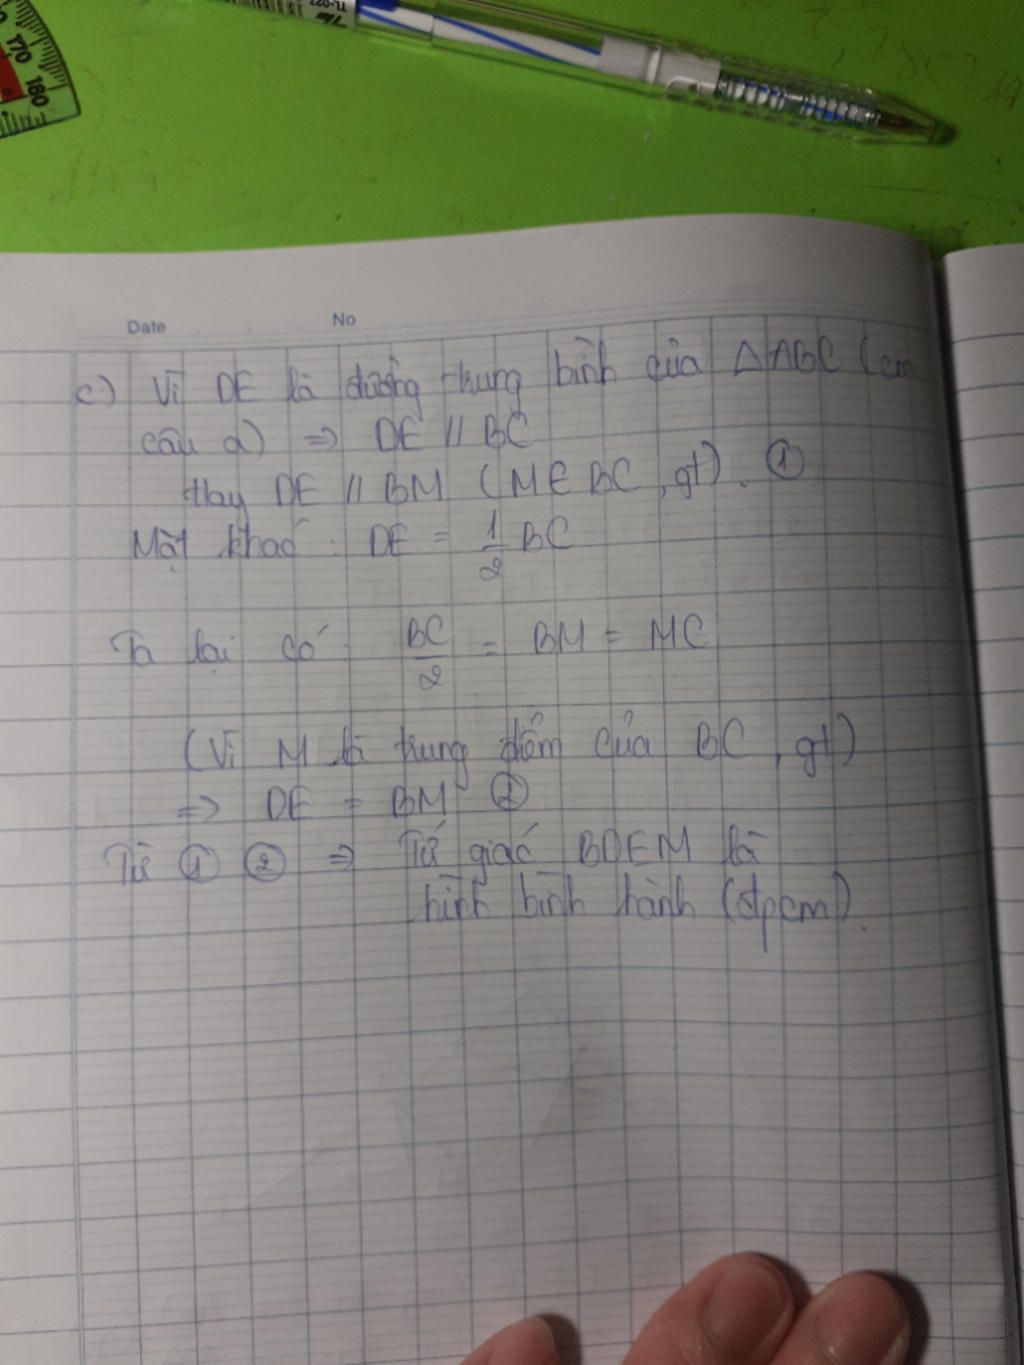 TL-027
170
180
Date No
c) Vì DE là đường trung bình của △ABC (cm
câu a) => DE // BC
Hay DE // BM (M∈BC, gt). ①
Mặt khác: DE = 1/2 BC
Ta lại có: BC/2 = BM = MC
(Vì M là trung điểm của BC, gt)
=> DE = BM ②
Từ ① ② => Tứ giác BDEM là
hình bình hành (đpcm).